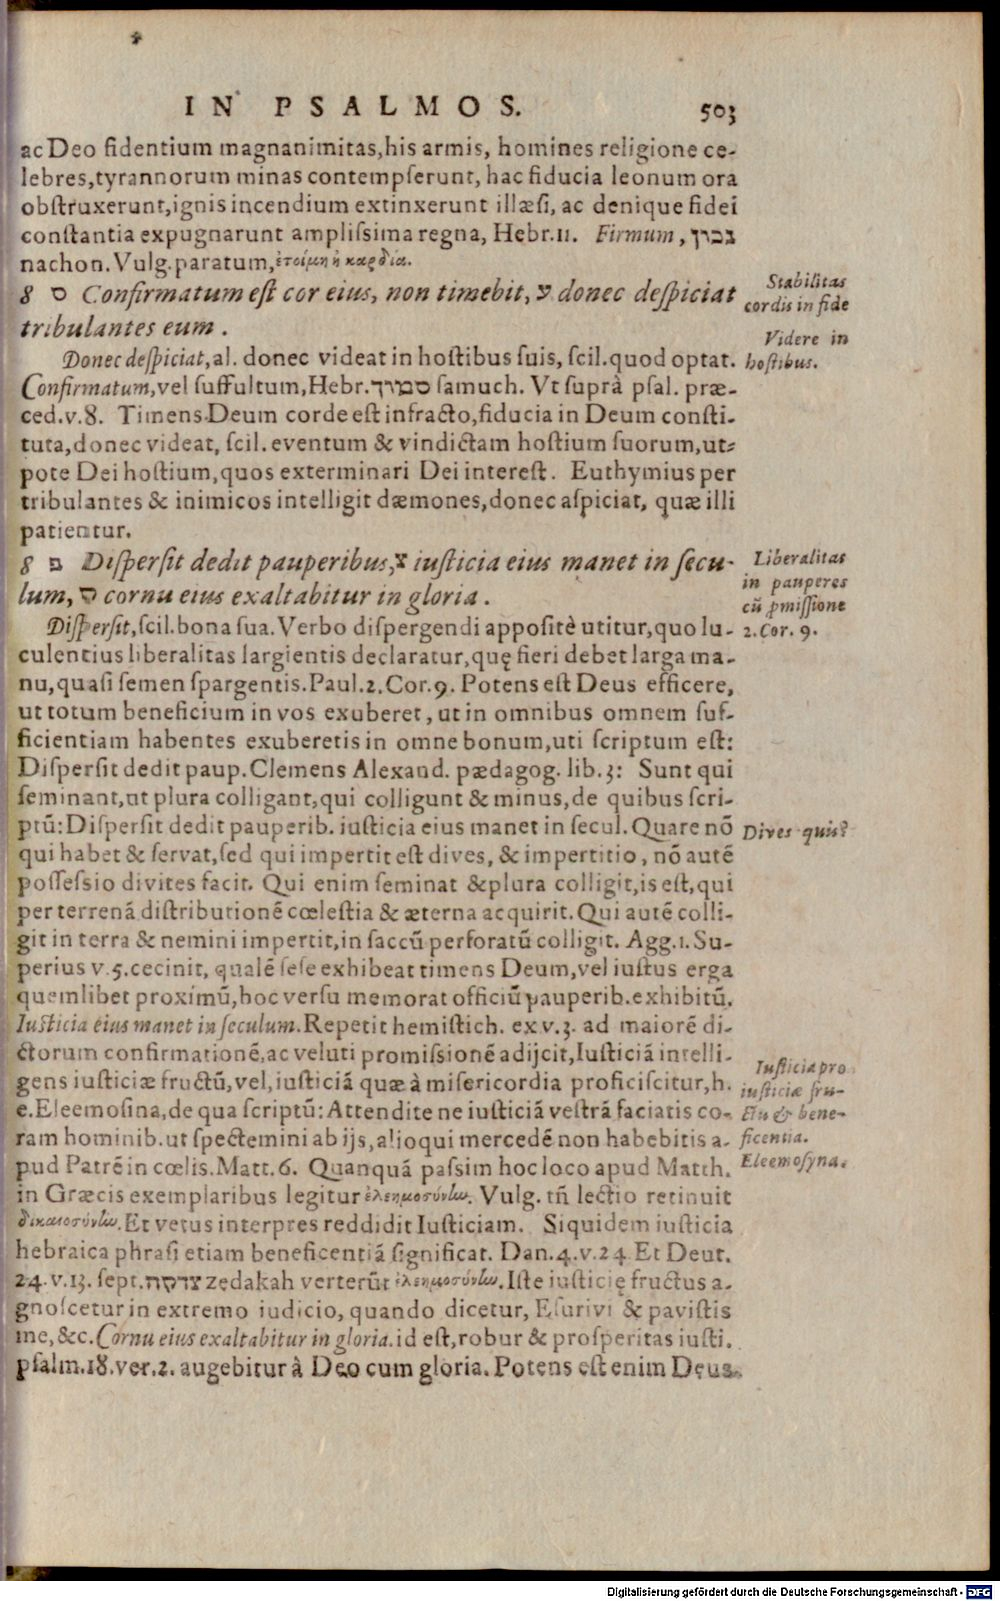 IN PSALMOS. 503
ac Deo fidentium magnanimitas, his armis, homines religione ce-
lebres, tyrannorum minas contempserunt, hac fiducia leonum ora
obstruxerunt, ignis incendium extinxerunt illæsi, ac denique fidei
constantia expugnarunt amplissima regna, Hebr. 11. Firmum, נכון
nachon. Vulg. paratum, ἑτοίμη ἡ καρδία.
8 ס Confirmatum est cor eius, non timebit, ע donec despiciat
tribulantes eum.
Stabilitas
cordis in fide
Videre in
hostibus.
Donec despiciat, al. donec videat in hostibus suis, scil. quod optat.
Confirmatum, vel suffultum, Hebr. סמוך samuch. Vt suprà psal. præ-
ced. v. 8. Timens Deum corde est infracto, fiducia in Deum consti-
tuta, donec videat, scil. eventum & vindictam hostium suorum, ut-
pote Dei hostium, quos exterminari Dei interest. Euthymius per
tribulantes & inimicos intelligit dæmones, donec aspiciat, quæ illi
patientur.
8 פ Dispersit dedit pauperibus, צ iusticia eius manet in secu-
lum, ק cornu eius exaltabitur in gloria.
Liberalitas
in pauperes
cũ pmissione
2. Cor. 9.
Dispersit, scil. bona sua. Verbo dispergendi appositè utitur, quo lu-
culentius liberalitas largientis declaratur, quę fieri debet larga ma-
nu, quasi semen spargentis. Paul. 2. Cor. 9. Potens est Deus efficere,
ut totum beneficium in vos exuberet, ut in omnibus omnem suf-
ficientiam habentes exuberetis in omne bonum, uti scriptum est:
Dispersit dedit paup. Clemens Alexand. pædagog. lib. 3: Sunt qui
seminant, ut plura colligant, qui colligunt & minus, de quibus scri-
ptũ: Dispersit dedit pauperib. iusticia eius manet in secul. Quare nõ
Dives quis?
qui habet & servat, sed qui impertit est dives, & impertitio, nõ autẽ
possessio divites facit. Qui enim seminat & plura colligit, is est, qui
per terrenã distributionẽ cœlestia & æterna acquirit. Qui autẽ colli-
git in terra & nemini impertit, in saccũ perforatũ colligit. Agg. 1. Su-
perius v. 5. cecinit, qualẽ sese exhibeat timens Deum, vel iustus erga
quemlibet proximũ, hoc versu memorat officiũ pauperib. exhibitũ.
Iusticia eius manet in seculum. Repetit hemistich. ex v. 3. ad maiorẽ di-
ctorum confirmationẽ, ac veluti promissionẽ adijcit, Iusticiã intelli-
gens iusticiæ fructũ, vel, iusticiã quæ à misericordia proficiscitur, h.
e. Eleemosina, de qua scriptũ: Attendite ne iusticiã vestrã faciatis co-
ram hominib. ut spectemini ab ijs, alioqui mercedẽ non habebitis a-
pud Patrẽ in cœlis. Matt. 6. Quanquã passim hoc loco apud Matth.
Iusticia pro
iusticiæ fru-
ctu & bene-
ficentia.
Eleemosyna.
in Græcis exemplaribus legitur ἐλεημοσύνω. Vulg. tñ lectio retinuit
δικαιοσύνω. Et vetus interpres reddidit Iusticiam. Siquidem iusticia
hebraica phrasi etiam beneficentiã significat. Dan. 4. v. 24. Et Deut.
24. v. 13. sept. צדקה zędakah verterũt ἐλεημοσύνω. Iste iusticię fructus a-
gnoscetur in extremo iudicio, quando dicetur, Esurivi & pavistis
me, &c. Cornu eius exaltabitur in gloria. id est, robur & prosperitas iusti.
psalm. 18. ver. 2. augebitur à Deo cum gloria. Potens est enim Deus
Digitalisierung gefördert durch die Deutsche Forschungsgemeinschaft - DFG